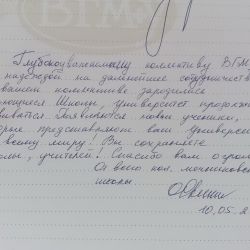 Глубокоуважаемому коллективу ВГМ
надеждой на дальнейшее сотрудничеств
вашем коллективе зародились
ющиеся Школы, университет продолж
вивается. Появляются новые ученики,
орые представляют ваш Универси
всему миру! Вы сохраняете
олы, учителей! Спасибо вам огром
От всего кол.
школы.
10.05.2